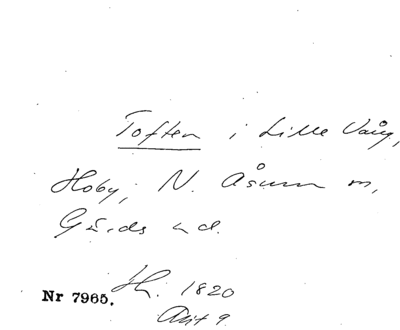 Toften i Lille Vång,
Hoby, N. Åsum sn,
Gärds hd.
Nr 7965. H. 1820
Akt 9